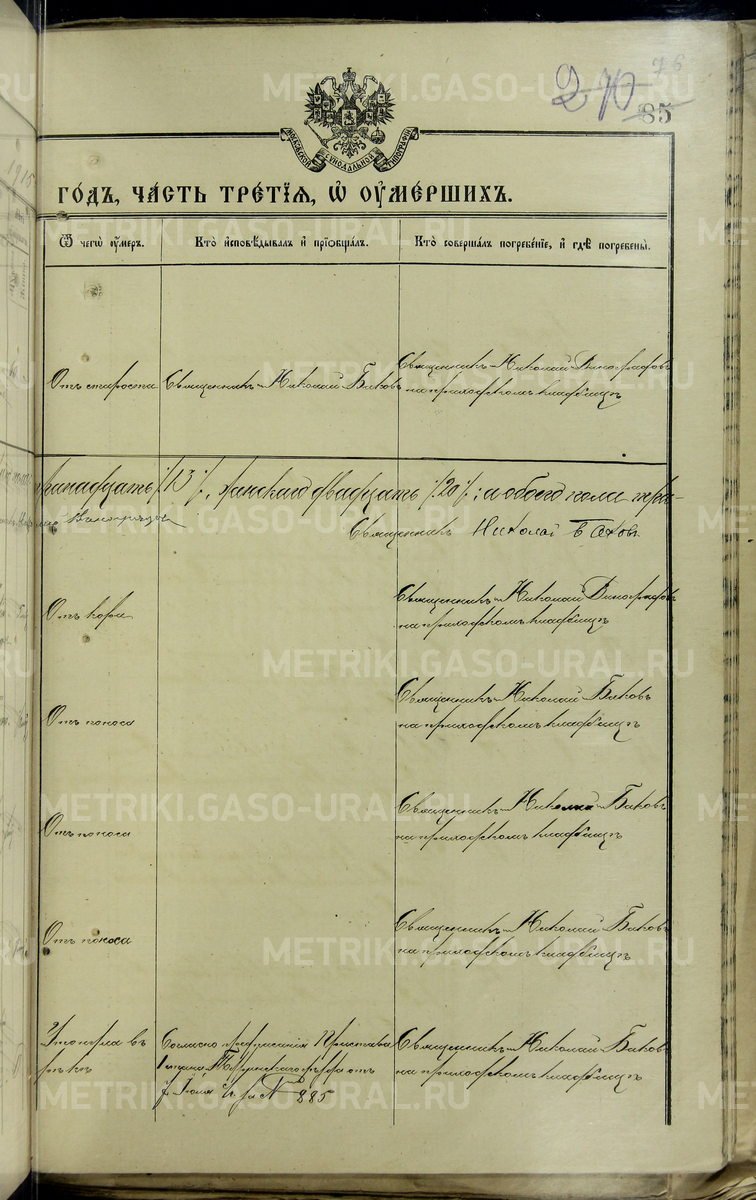 270
76
85
МОСКОВСКОЙ СѴНОДАЛЬНОЙ ТИПОГРАФІИ
1915
ГО́ДЪ, ЧА́СТЬ ТРЕ́ТІѦ, Ѡ҆ ОУ҆МЕ́РШИХЪ.
Ѿ чегѡ̀ оу҆́меръ.
Кто̀ и҆сповѣ́дывалъ и҆ прїѡбща́лъ.
Кто̀ соверша́лъ погребе́нїе, и҆ гдѣ̀ погребены̀.
Отъ старости
Священникъ Николай Баковъ
Священникъ Николай Виноградовъ
на приходскомъ кладбищѣ
тринадцать /:13:/, женскаго двадцать /:20:/; а обоего пола трид-
Священникъ Николай Баковъ
Отъ кори
Священникъ Николай Виноградовъ
на приходскомъ кладбищѣ
Отъ поноса
Священникъ Николай Баковъ
на приходскомъ кладбищѣ
Отъ поноса
Священникъ Николай Баковъ
на приходскомъ кладбищѣ
Отъ поноса
Священникъ Николай Баковъ
на приходскомъ кладбищѣ
Утонула въ
рѣкѣ
Согласно предписанія Пристава
стана уѣзда отъ
7 Іюля за № 885
Священникъ Николай Баковъ
на приходскомъ кладбищѣ
METRIKI.GASO-URAL.RU